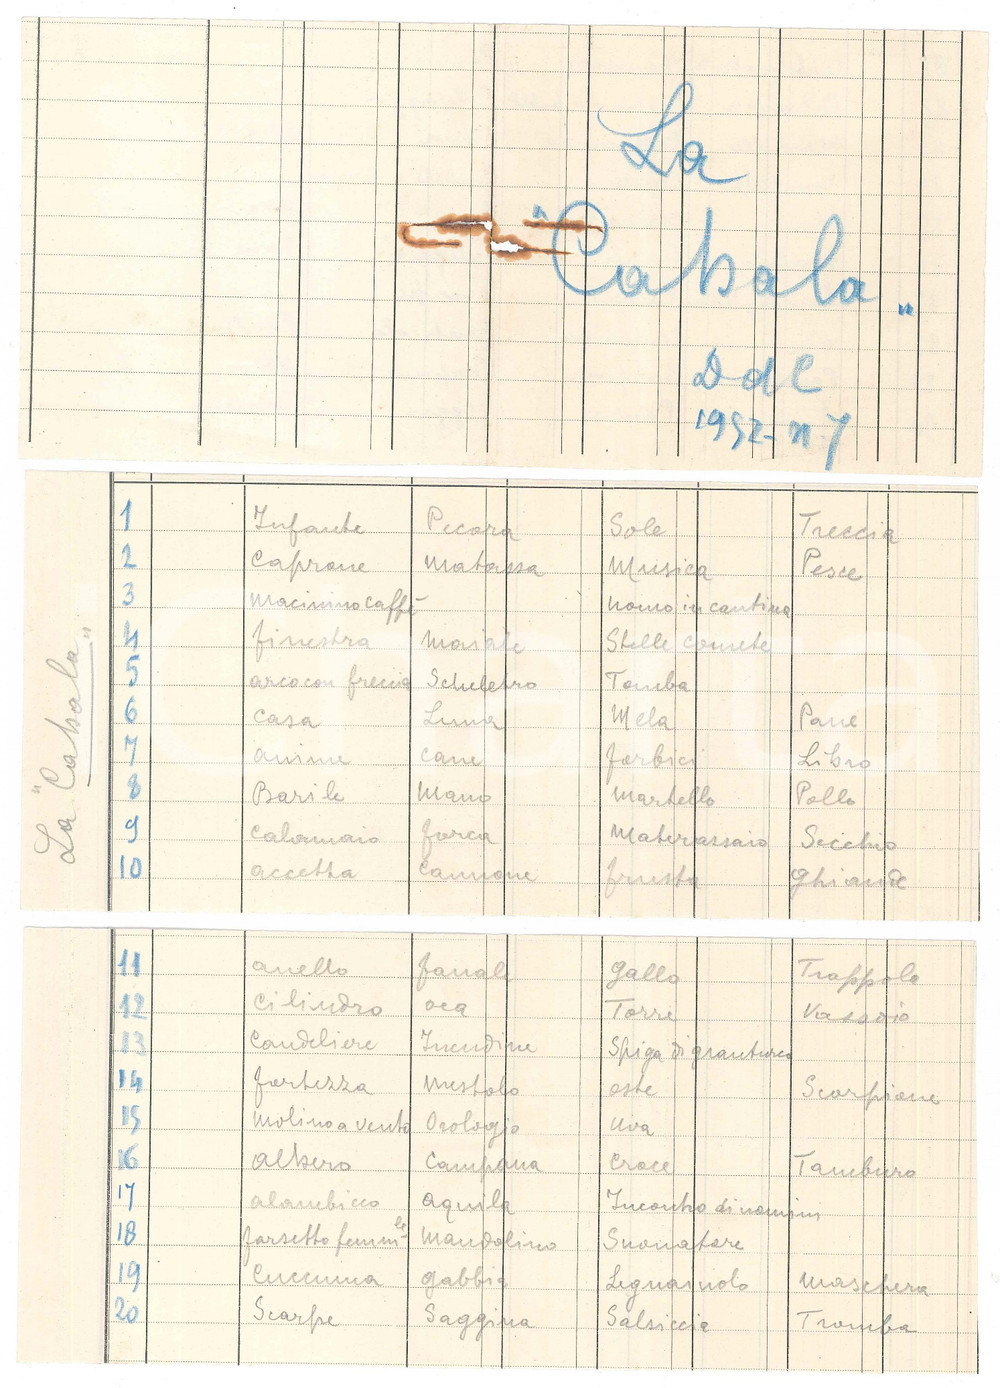 La
"Cabala"
D d C
1952 - n. 7
La "Cabala"
1 Infante Pecora Sole Treccia
2 Caprone Matassa Musica Pesce
3 Macinino caffè uomo in cantina
4 finestra Maiale Stelle comete
5 arco con freccia Scheletro Tomba
6 Casa Luna Mela Pane
7 anime cane forbici Libro
8 Barile Mano Martello Pollo
9 Calamaio forca Materassaio Secchio
10 accetta Cannone frusta Ghiande
11 anello fanale gallo Trappola
12 Cilindro oca Torre Vassoio
13 Candeliere Incudine Spiga di granturco
14 fortezza Mestolo oste Scorpione
15 Molino a vento Orologio Uva
16 albero Campana Croce Tamburo
17 alambicco aquila Incontro di uomini
18 farsetto femmle Mandolino Suonatore
19 Cuccuma gabbia Legnaiuolo Maschera
20 Scarpe Saggina Salsiccia Tromba